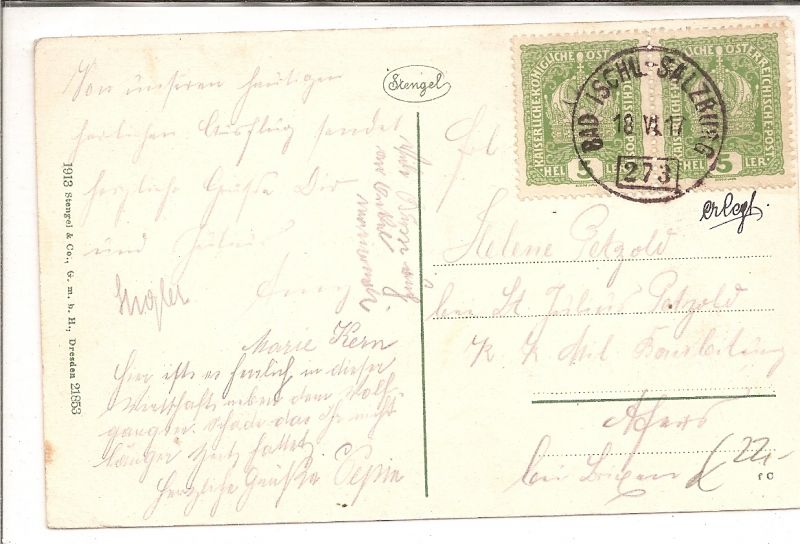 Von unseren heutigen
herrlichen Ausflug sendet
herzliche Grüße Dir
und Julius
Marie Kern
hier ists so herrlich in dieser
Wirtschaft neben dem Wolf-
gangsee. Schade das Ihr nicht
länger Zeit hattet
Herzliche Grüße Pepin
Stengel
1913 Stengel & Co., G. m. b. H., Dresden 21853
KAISERLICHE KÖNIGLICHE ÖSTERREICHISCHE POST
5 HELLER
KAISERLICHE KÖNIGLICHE ÖSTERREICHISCHE POST
5 HELLER
BAD ISCHL-SALZBURG
18 VI. 17
273
erlegt.
Frl.
Helene Petzold
bei Lt Julius Petzold
K. K. Mil. Bauleitung
Afers
bei Brixen
22,-